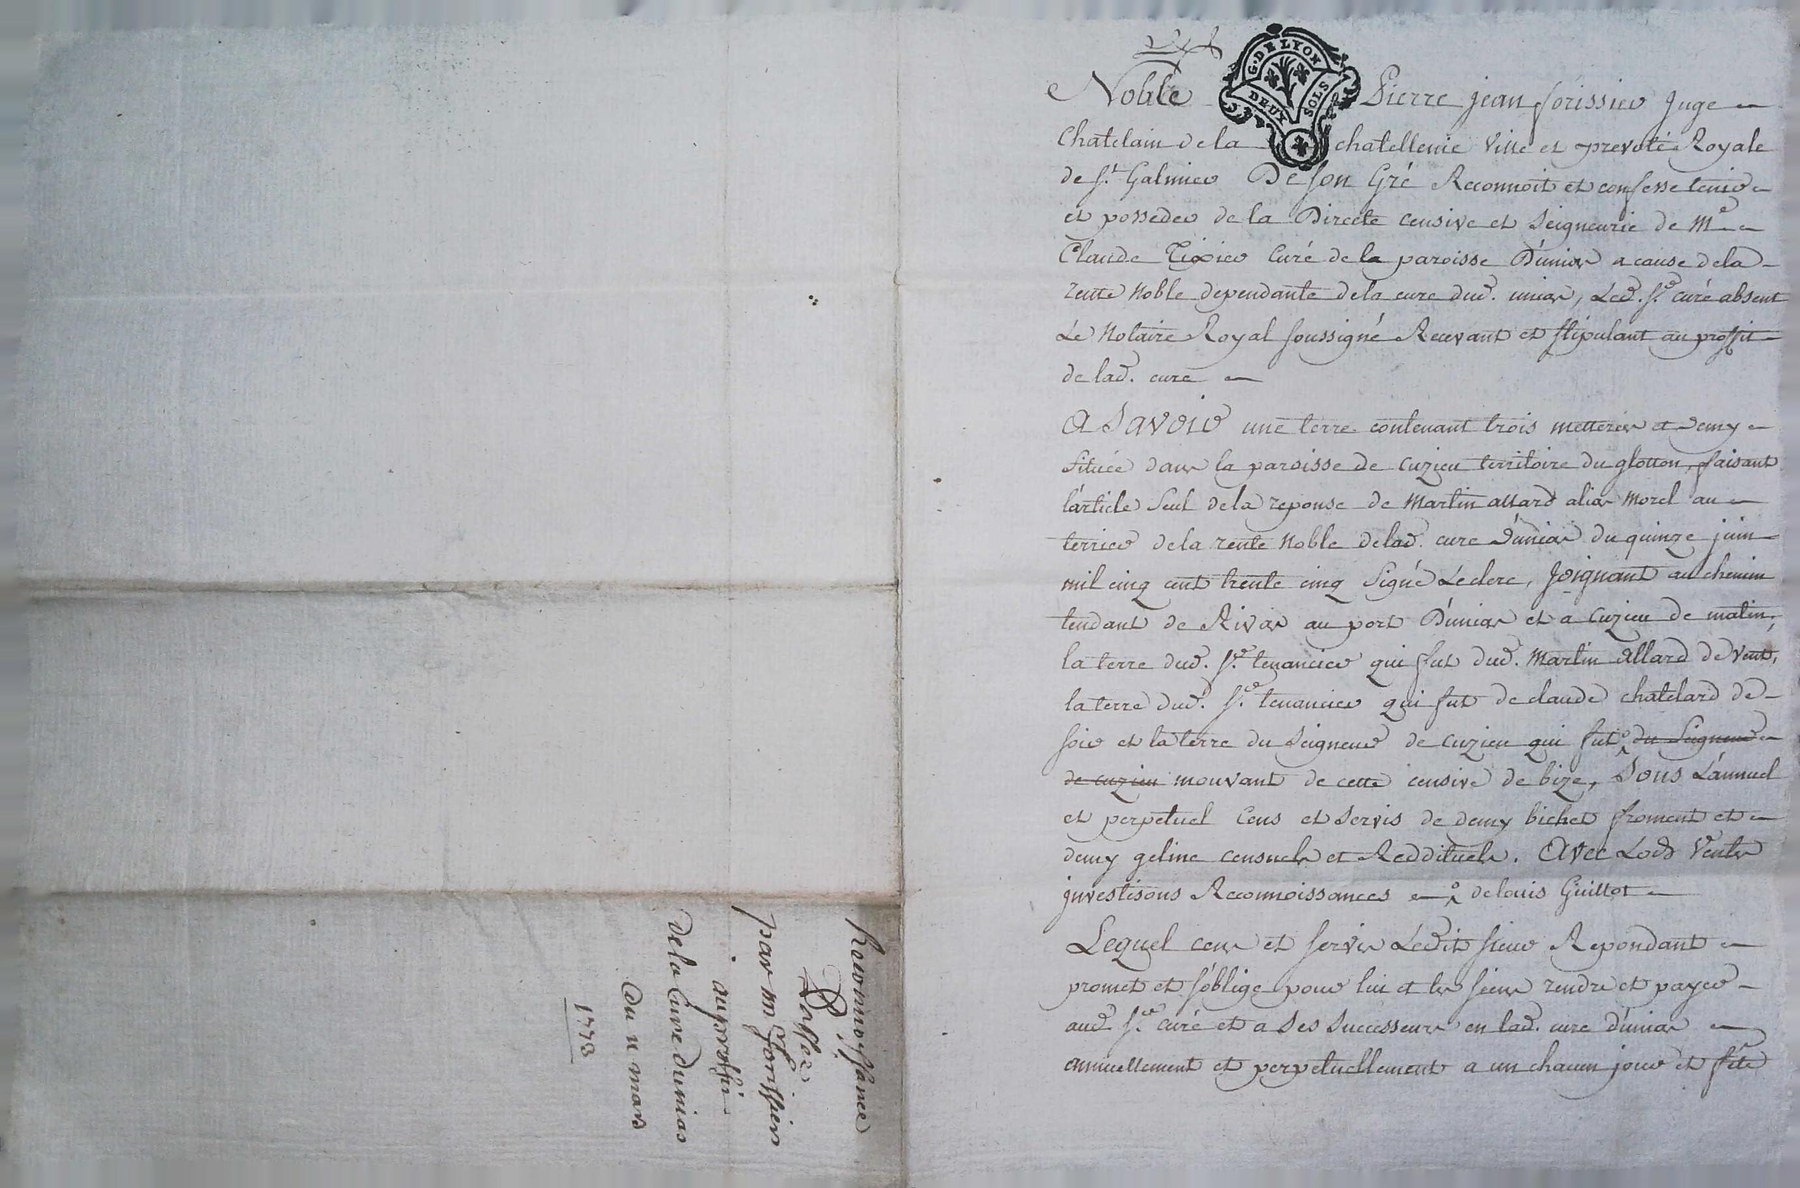 G. DE LYON
DEUX SOLS
Noble Pierre jean forissier Juge
Chatelain de la chatellenie Ville et prevoté Royale
de St. Galmier De son Gré Reconnoit et confesse tenir
et posseder de la Directe censive et Seigneurie de Mre
Claude Tixier Curé de la paroisse D'unias a cause de la
rente Noble dependante de la cure dud. unias, Led. Sr. curé absent
Le Notaire Royal soussigné Recevant et stipulant au proffit
de lad. cure
A Savoir une terre contenant trois metterées et demy
située dans la paroisse de Cuzieu territoire du glotton, faisant
l'article seul de la reponse de Martin allard alias Morel au
terrier de la rente Noble de lad. cure d'unias du quinze juin
mil cinq cent trente cinq Signé Leclerc, Joignant au chemin
tendant de Rivas au port D'unias et a Cuzieu de matin,
la terre dud. Sr. tenancier qui fut dud. Martin Allard de vent,
la terre dud. Sr. tenancier qui fut de claude chatelard de
soir et la terre du Seigneur de Cuzieu qui fut du Seigneur
de cuzieu mouvant de cette censive de bize, Sous L'annuel
et perpetuel Cens et Servis de demy bichet froment et
demy geline censuels et Reddituels. Avec Lods Ventes
jnvestisons Reconnoissances de louis Guillot
Lequel cens et servis Ledit sieur Repondant
promet et s'oblige pour lui et les siens rendre et payer
aud. Sr. curé et a Ses Successeurs en lad. cure d'unias
annuellement et perpetuellement a un chacun jour et fête
Reconnoissance
Passée
par Mr Forissier
au proffit
de la Cure dunias
Du 11 mars
1778